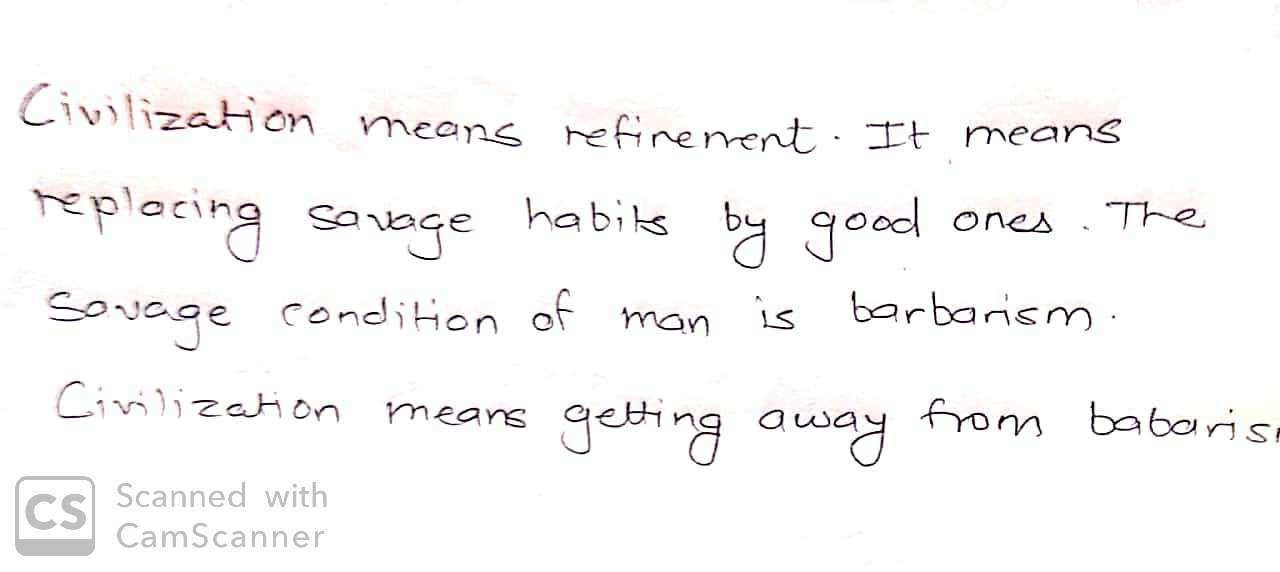 Civilization means refinement. It means
replacing savage habits by good ones. The
Savage condition of man is barbarism.
Civilization means getting away from babaris
CS Scanned with
CamScanner